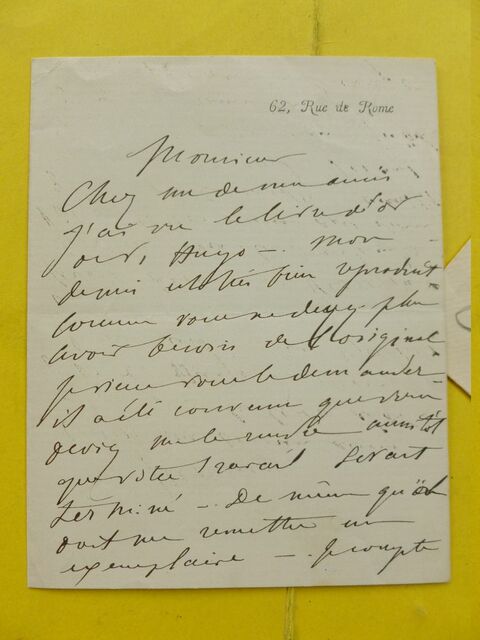 62, Rue de Rome
Monsieur
Chez un de mes amis
j'ai vu le livre d'or
de V. Hugo — Mon
dessin est très bien reproduit
comme vous ne devez plus
avoir besoin de l'original
je viens vous le demander
il a été convenu que vous
deviez me le rendre aussitôt
que votre travail serait
terminé — De même qu'on
doit me remettre un
exemplaire — Je compte